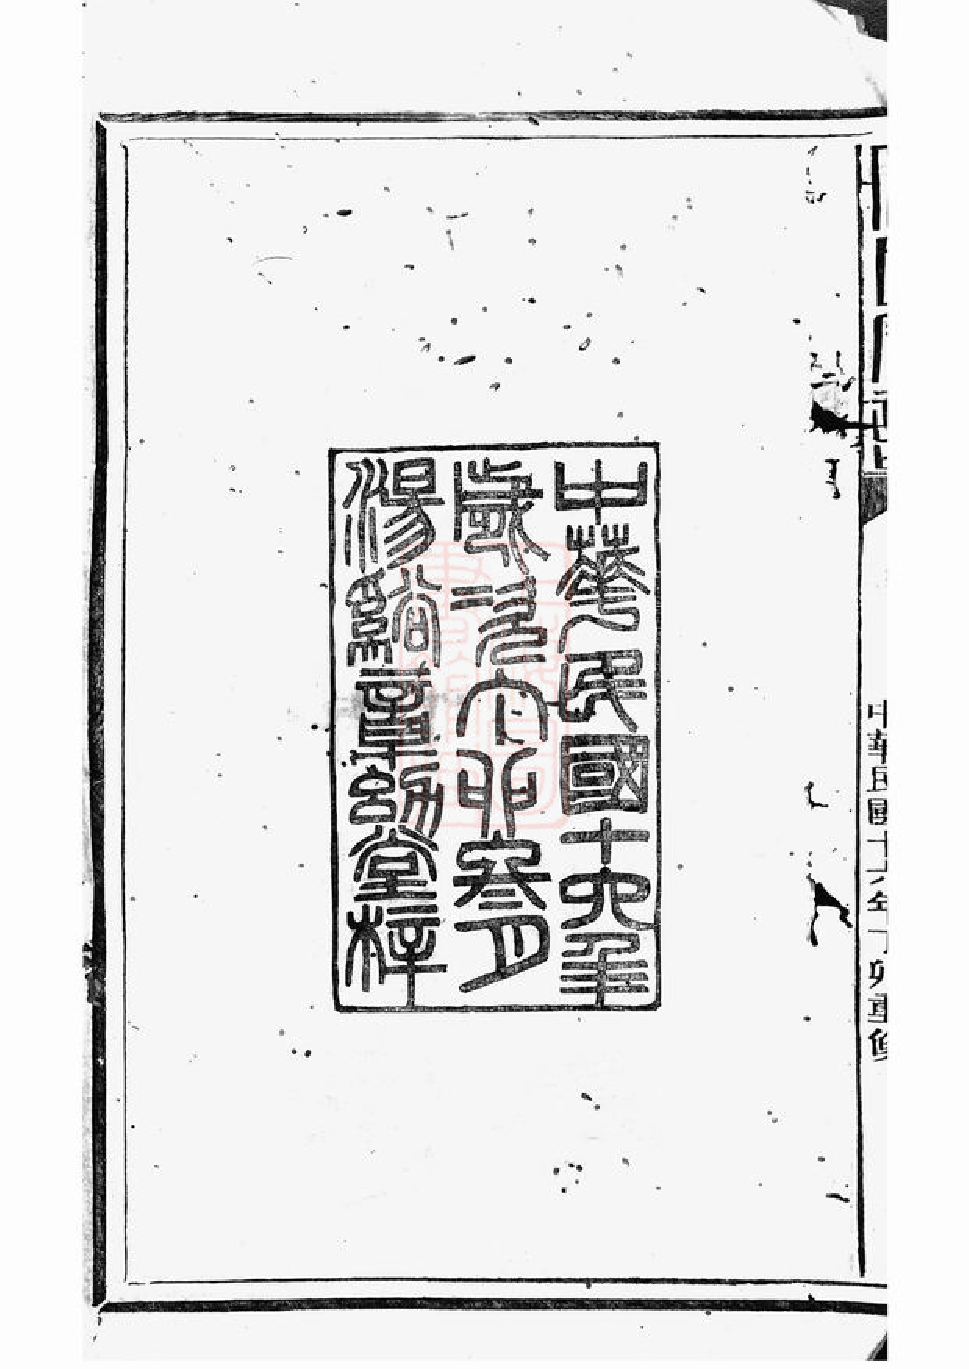 中華民國十六年
歲次丁卯叄月
湯谿章韌堂梓
中華民國十六年丁卯重修